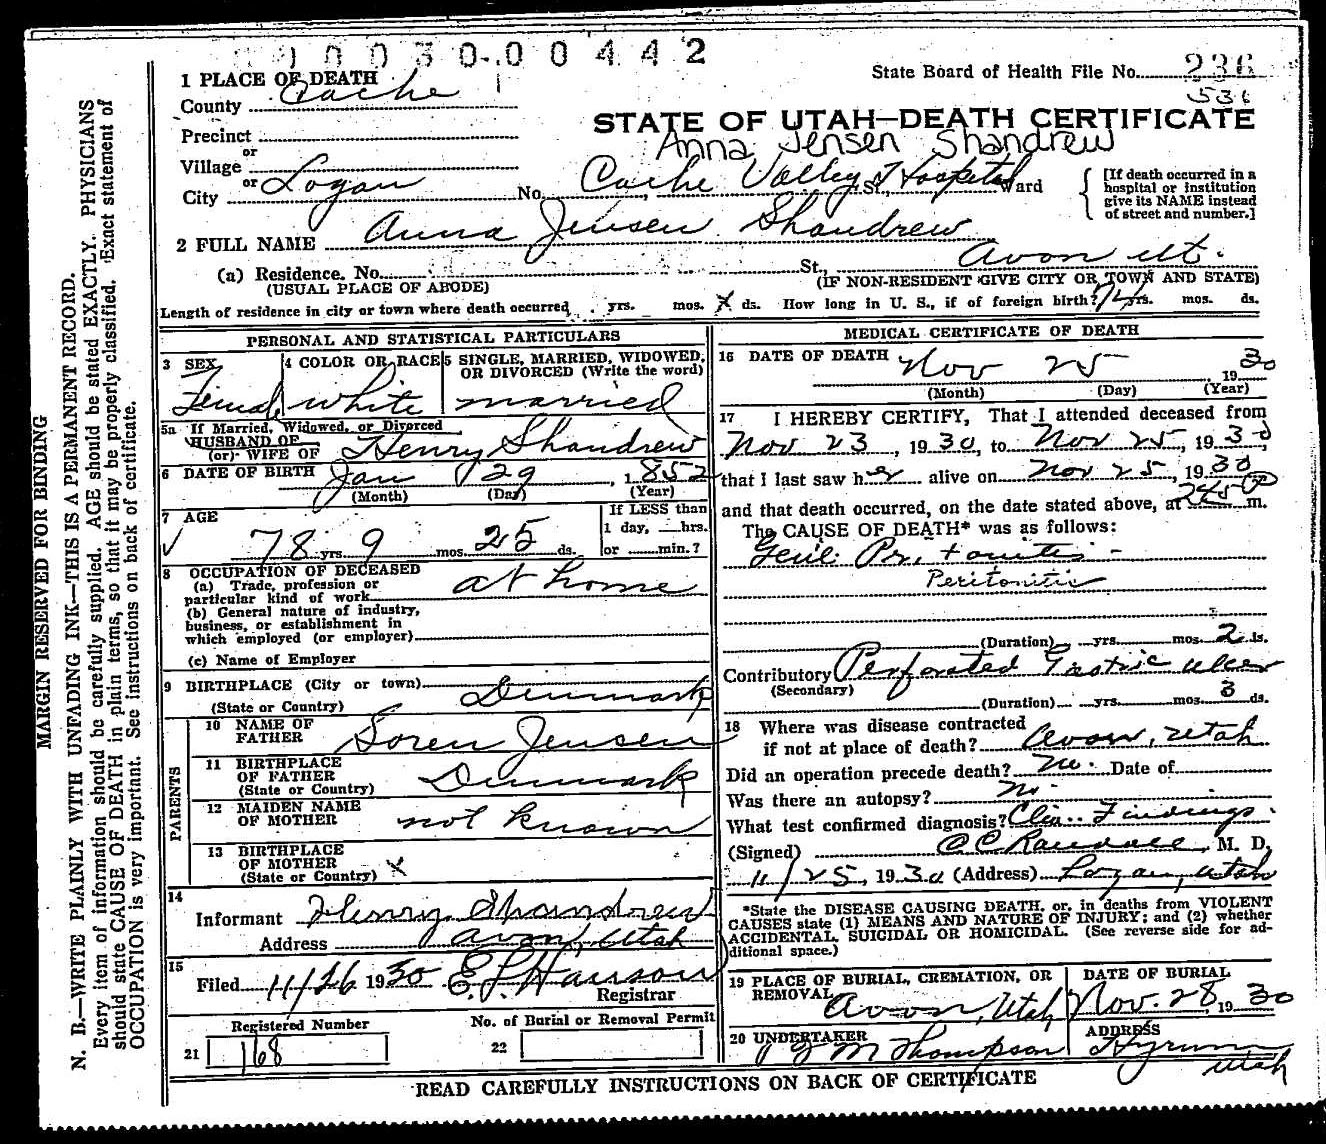 1 0 0 3 0.0 0 4 4 2
1 PLACE OF DEATH
State Board of Health File No. 236
536
County Cache
STATE OF UTAH—DEATH CERTIFICATE
Precinct
Anna Jensen Shandrew
or
Village
or
City Logan No. Cache Valley Hospital St., Ward
[If death occurred in a hospital or institution give its NAME instead of street and number.]
2 FULL NAME Anna Jensen Shandrew
(a) Residence. No. St., Avon Ut.
(USUAL PLACE OF ABODE) (IF NON-RESIDENT GIVE CITY OR TOWN AND STATE)
Length of residence in city or town where death occurred yrs. mos. ds. How long in U. S., if of foreign birth? yrs. mos. ds.
PERSONAL AND STATISTICAL PARTICULARS
3 SEX Female
4 COLOR OR RACE white
5 SINGLE, MARRIED, WIDOWED, OR DIVORCED (Write the word) married
5a If Married, Widowed, or Divorced
HUSBAND OF
(or) WIFE OF Henry Shandrew
6 DATE OF BIRTH Jan 29, 1852
(Month) (Day) (Year)
7 AGE
78 yrs. 9 mos. 25 ds.
If LESS than
1 day, hrs.
or min.?
8 OCCUPATION OF DECEASED
(a) Trade, profession or
particular kind of work at home
(b) General nature of industry,
business, or establishment in
which employed (or employer)
(c) Name of Employer
9 BIRTHPLACE (City or town)
(State or Country) Denmark
PARENTS
10 NAME OF
FATHER Soren Jensen
11 BIRTHPLACE
OF FATHER
(State or Country) Denmark
12 MAIDEN NAME
OF MOTHER not known
13 BIRTHPLACE
OF MOTHER
(State or Country) x
14
Informant Henry Shandrew
Address Avon, Utah
15
Filed 11/26 1930 E L Hanson
Registrar
Registered Number
21 168
No. of Burial or Removal Permit
22
MEDICAL CERTIFICATE OF DEATH
16 DATE OF DEATH Nov 25 1930
(Month) (Day) (Year)
17 I HEREBY CERTIFY, That I attended deceased from
Nov 23, 1930, to Nov 25, 1930,
that I last saw her alive on Nov 25, 1930
and that death occurred, on the date stated above, at m.
The CAUSE OF DEATH* was as follows:
Peritonitis
(Duration) yrs. mos. 2 ds.
Contributory Perforated Gastric ulcer
(Secondary)
(Duration) yrs. mos. 3 ds.
18 Where was disease contracted
if not at place of death? Avon, Utah
Did an operation precede death? No. Date of
Was there an autopsy? No.
What test confirmed diagnosis? Clin.. Findings.
(Signed) C C Randall, M. D.
11/25, 1930 (Address) Logan, Utah
*State the DISEASE CAUSING DEATH, or, in deaths from VIOLENT
CAUSES state (1) MEANS AND NATURE OF INJURY; and (2) whether
ACCIDENTAL, SUICIDAL OR HOMICIDAL. (See reverse side for ad-
ditional space.)
19 PLACE OF BURIAL, CREMATION, OR
REMOVAL Avon, Utah
DATE OF BURIAL
Nov. 28, 1930
20 UNDERTAKER
M Thompson
ADDRESS
Hyrum
Utah
READ CAREFULLY INSTRUCTIONS ON BACK OF CERTIFICATE
MARGIN RESERVED FOR BINDING
N. B.—WRITE PLAINLY WITH UNFADING INK—THIS IS A PERMANENT RECORD.
Every item of information should be carefully supplied. AGE should be stated EXACTLY. PHYSICIANS
should state CAUSE OF DEATH in plain terms, so that it may be properly classified. Exact statement of
OCCUPATION is very important. See instructions on back of certificate.